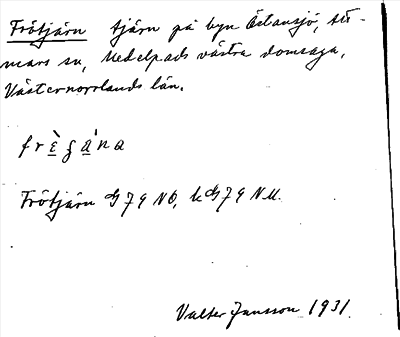 Frötjärn tjärn på byn Östansjö, Att-
mars sn, Medelpads västra domsaga,
Västernorrlands län.
Frötjärn G 79 NO, k G 79 NU.
Valter Jansson 1931